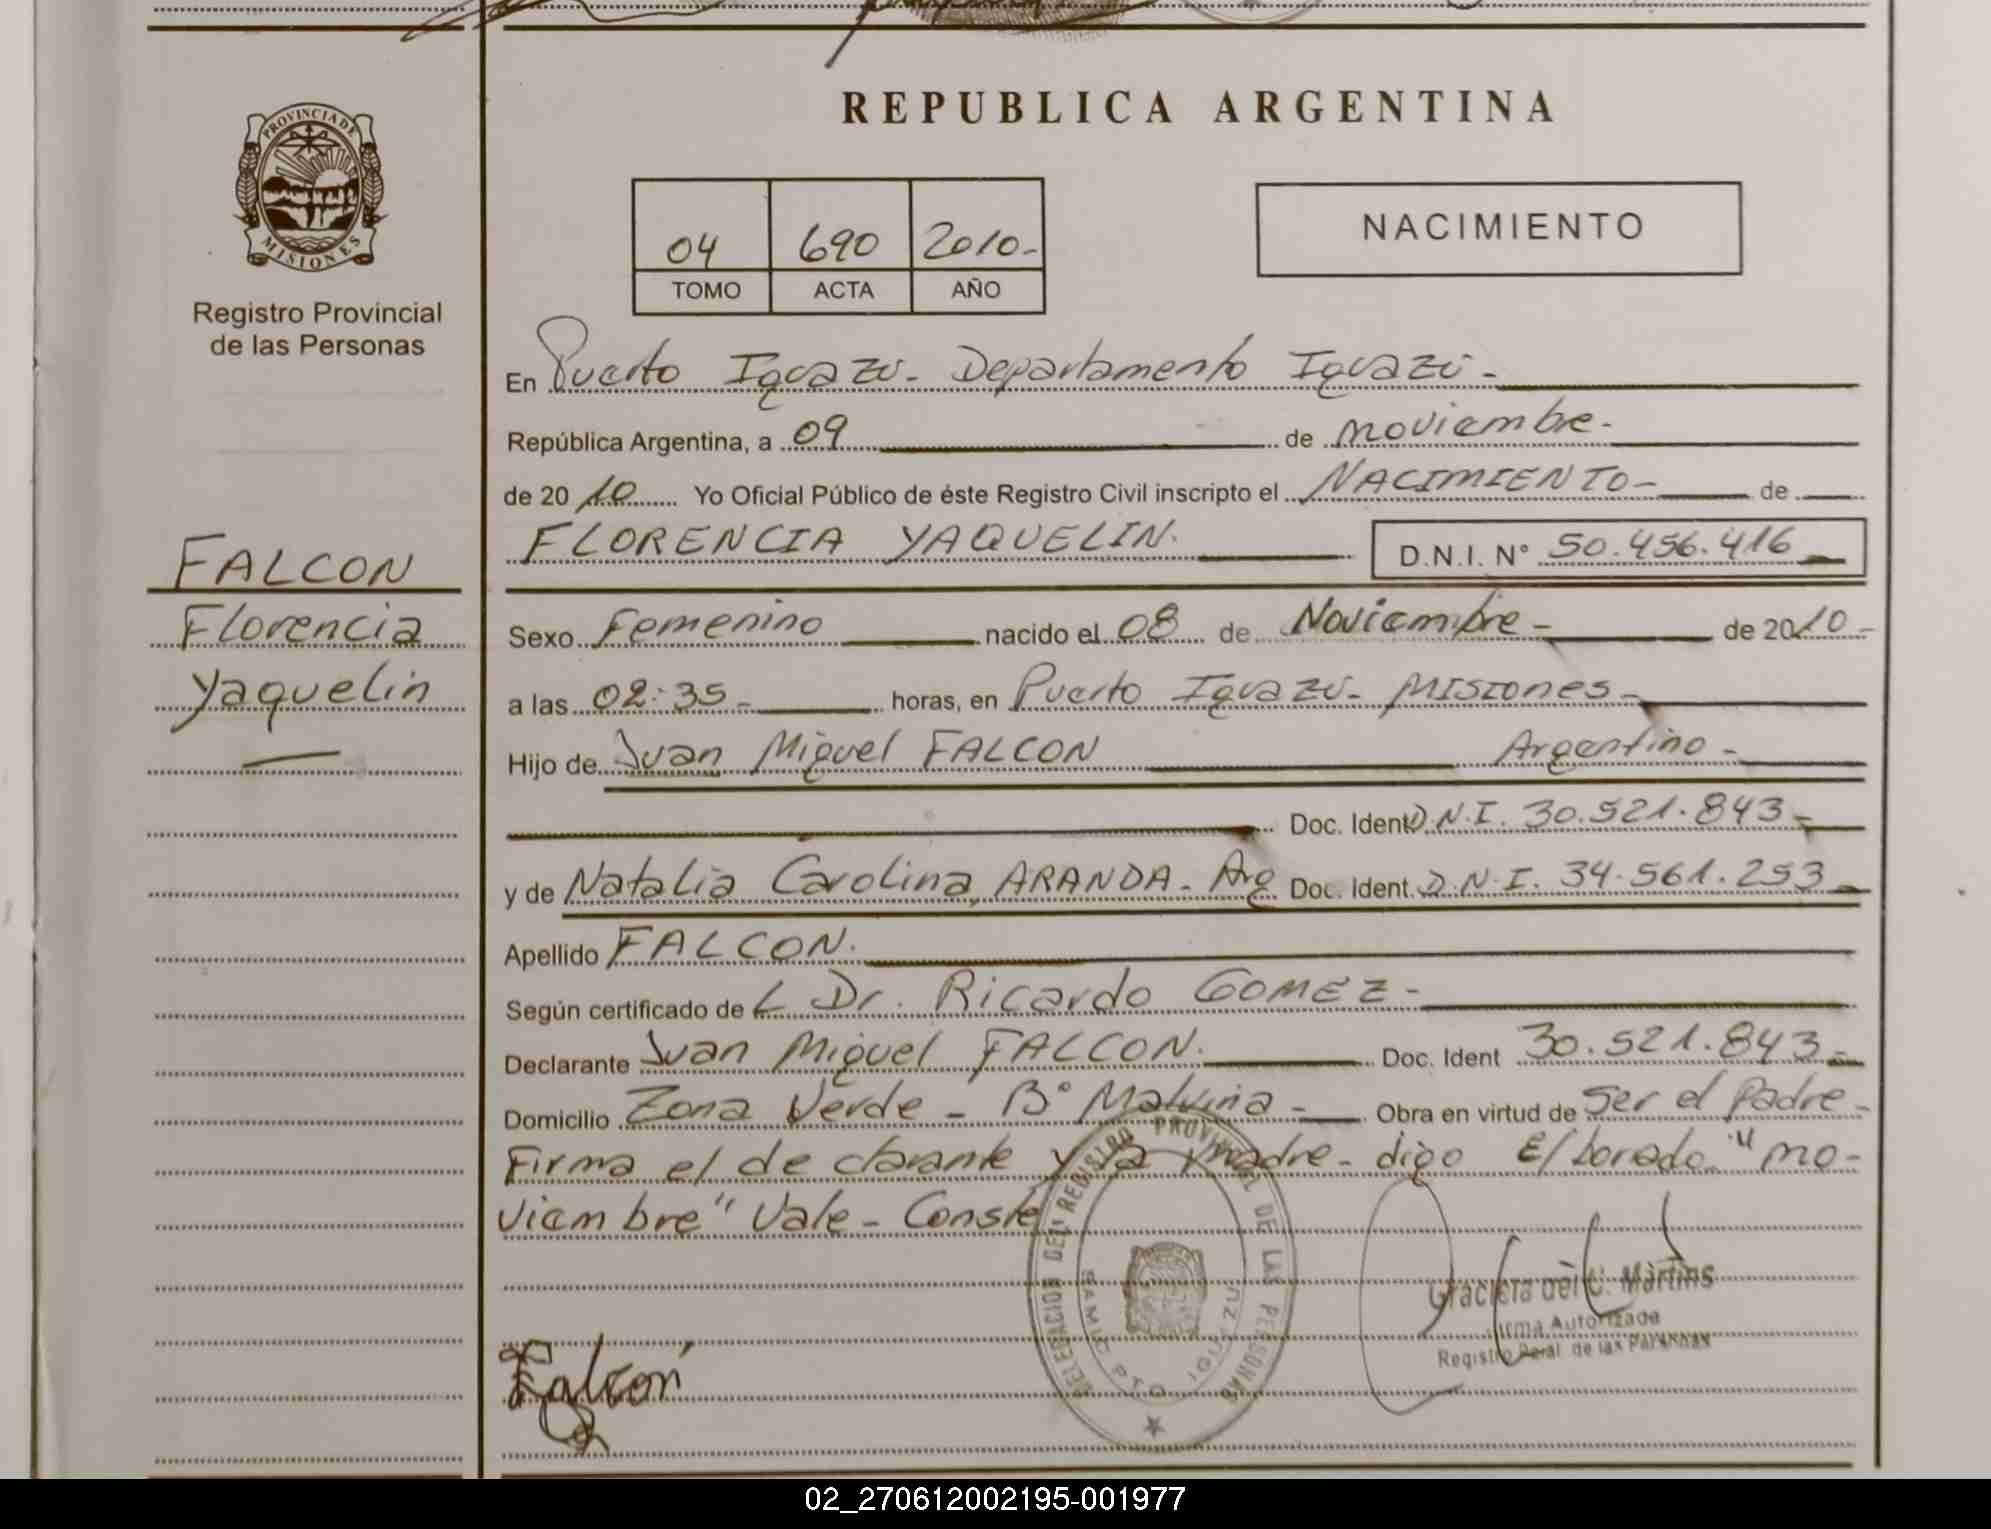 REPUBLICA ARGENTINA
PROVINCIA DE
MISIONES
Registro Provincial
de las Personas
04 690 2010-
TOMO ACTA AÑO
NACIMIENTO
En Puerto Iguazú - Departamento Iguazú -
República Argentina, a 09 de noviembre -
de 2010 Yo Oficial Público de éste Registro Civil inscripto el NACIMIENTO - de
FLORENCIA YAQUELIN. D.N.I. N° 50.456.416
FALCON
Florencia
Yaquelin
Sexo Femenino nacido el 08 de Noviembre - de 2010 -
a las 02:35 - horas, en Puerto Iguazú - Misiones -
Hijo de Juan Miguel FALCON Argentino -
Doc. Ident D.N.I. 30.521.843 -
y de Natalia Carolina ARANDA - Arg Doc. Ident. D.N.I. 34.561.253
Apellido FALCON.
Según certificado de L Dr. Ricardo GOMEZ -
Declarante Juan Miguel FALCON. Doc. Ident 30.521.843 -
Domicilio Zona Verde - B° Malvina - Obra en virtud de Ser el Padre -
Firma el declarante y la madre - digo E/borado "no-
viembre" Vale - Conste
DELEGACION DEL REGISTRO PROVINCIAL DE LAS PERSONAS
SAMIC PTO IGUAZU
Graciela del C. Martins
Firma Autorizada
Registro Pcial. de las Personas
Falcón
02_270612002195-001977